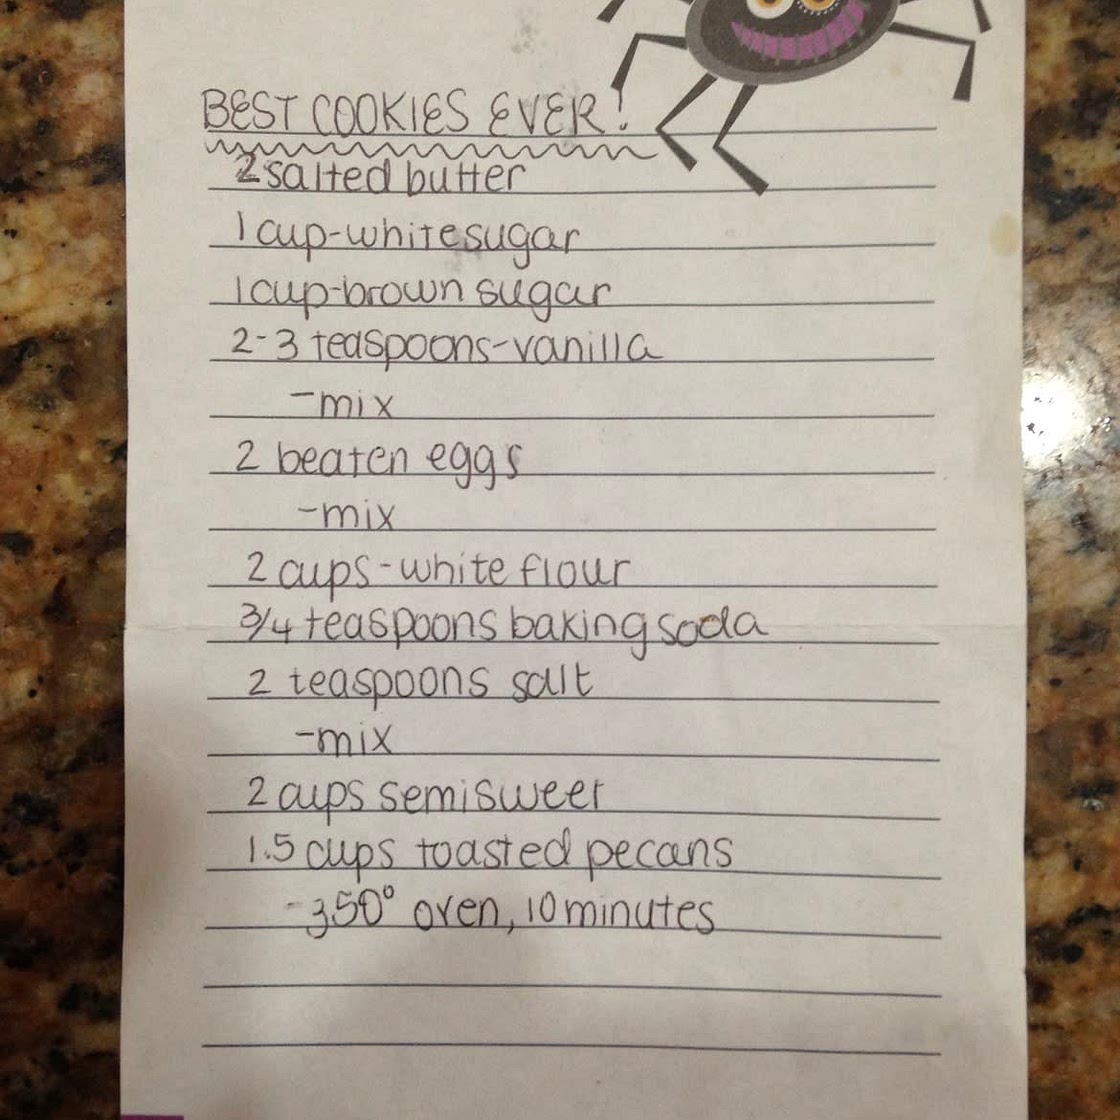 BEST COOKIES EVER!
2 salted butter
1 cup-white sugar
1 cup-brown sugar
2-3 teaspoons-vanilla
-mix
2 beaten eggs
-mix
2 cups-white flour
3/4 teaspoons baking soda
2 teaspoons salt
-mix
2 cups semisweet
1.5 cups toasted pecans
-350° oven, 10 minutes